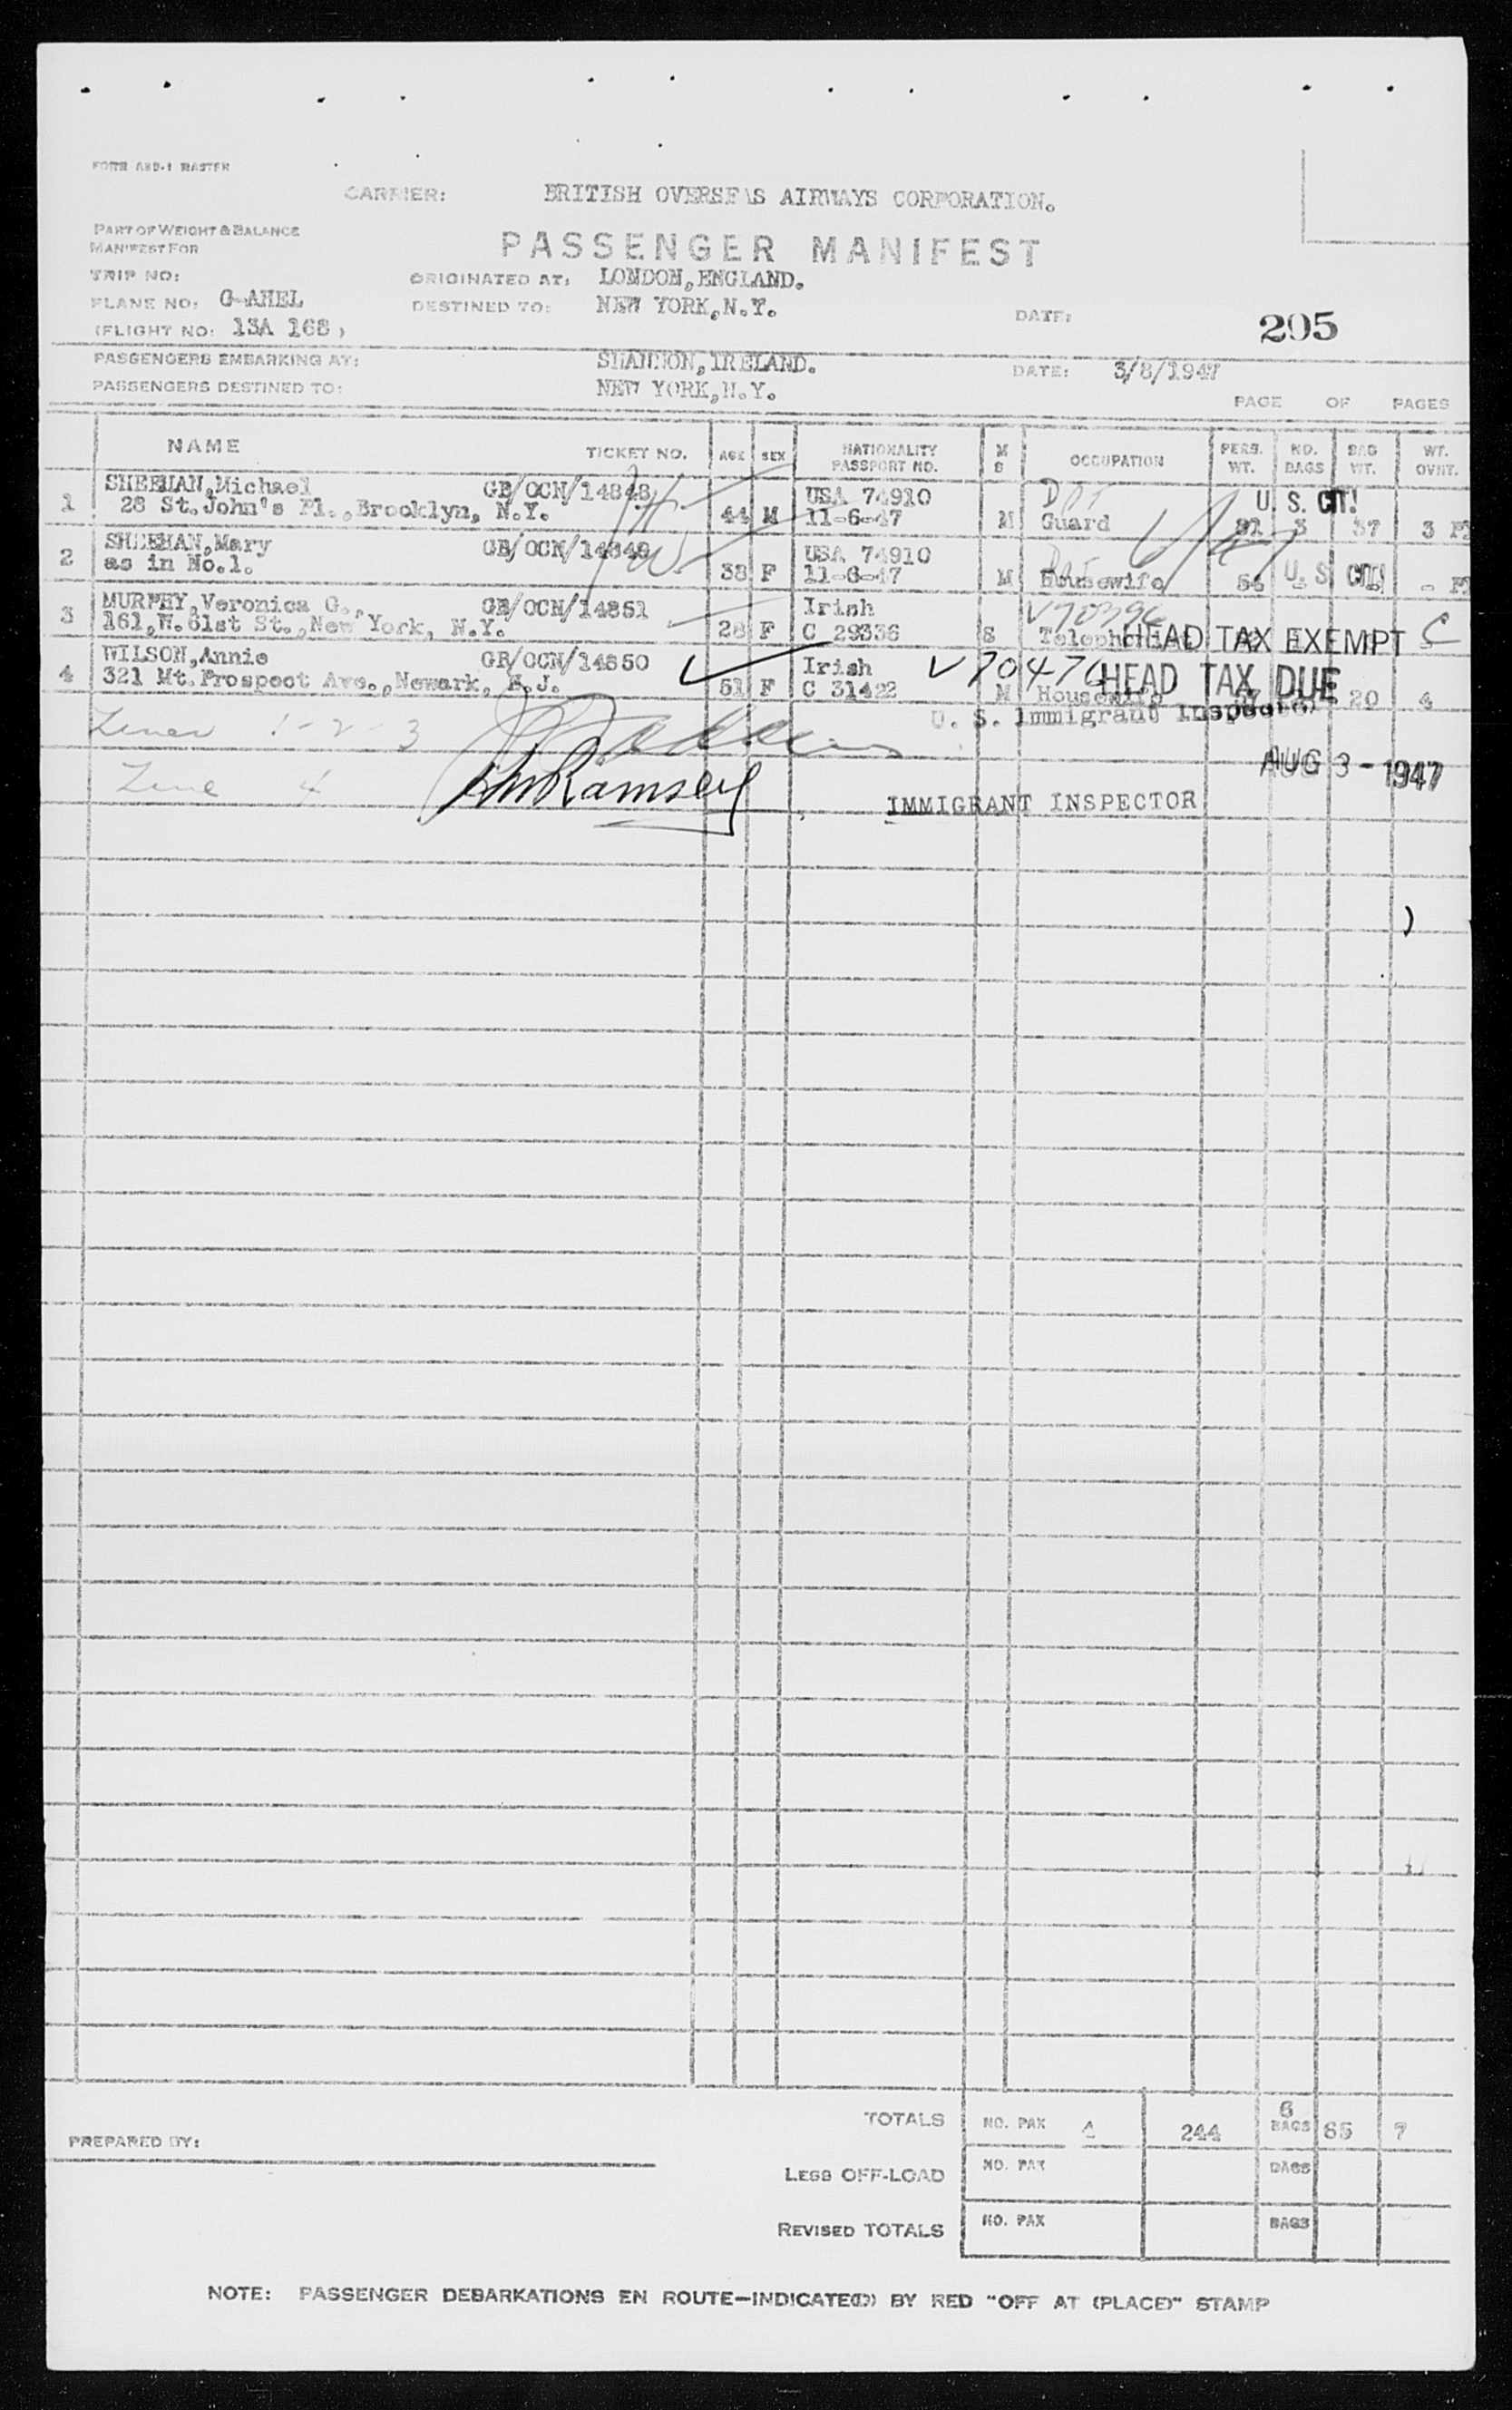 FORM ABD-1 MASTER
CARRIER: BRITISH OVERSEAS AIRWAYS CORPORATION.
PART OF WEIGHT & BALANCE
MANIFEST FOR
PASSENGER MANIFEST
TRIP NO: ORIGINATED AT: LONDON, ENGLAND.
PLANE NO: G-AHEL DESTINED TO: NEW YORK, N.Y. DATE:
(FLIGHT NO: 13A 168) 205
PASSENGERS EMBARKING AT: SHANNON, IRELAND. DATE: 3/8/1947
PASSENGERS DESTINED TO: NEW YORK, N.Y.
PAGE OF PAGES
NAME TICKET NO. AGE SEX NATIONALITY PASSPORT NO. M S OCCUPATION PERS. WT. NO. BAGS BAG WT. WT. OVHT.
1 SHEEHAN, Michael GB/OCN/14848 USA 74910 U. S. CIT!
28 St. John's Pl., Brooklyn, N.Y. 44 M 11-6-47 M Guard 91 3 37 3
2 SHEEHAN, Mary GB/OCN/14849 USA 74910
as in No.1. 38 F 11-6-47 M Housewife 56 U. S. CIT! -
3 MURPHY, Veronica G., GB/OCN/14851 Irish
161, W. 61st St., New York, N.Y. 28 F C 29336 S HEAD TAX EXEMPT
4 WILSON, Annie GB/OCN/14850 Irish V70476 HEAD TAX DUE
321 Mt. Prospect Ave., Newark, N.J. 51 F C 31422 M Housewife 20 4
U. S. Immigrant Inspector
Lines 1-2-3
AUG 3 - 1947
Line 4 Ramsey
IMMIGRANT INSPECTOR
TOTALS NO. PAX 4 244 6 BAGS 65 7
PREPARED BY:
LESS OFF-LOAD NO. PAX BAGS
REVISED TOTALS NO. PAX BAGS
NOTE: PASSENGER DEBARKATIONS EN ROUTE—INDICATE(D) BY RED "OFF AT (PLACE)" STAMP